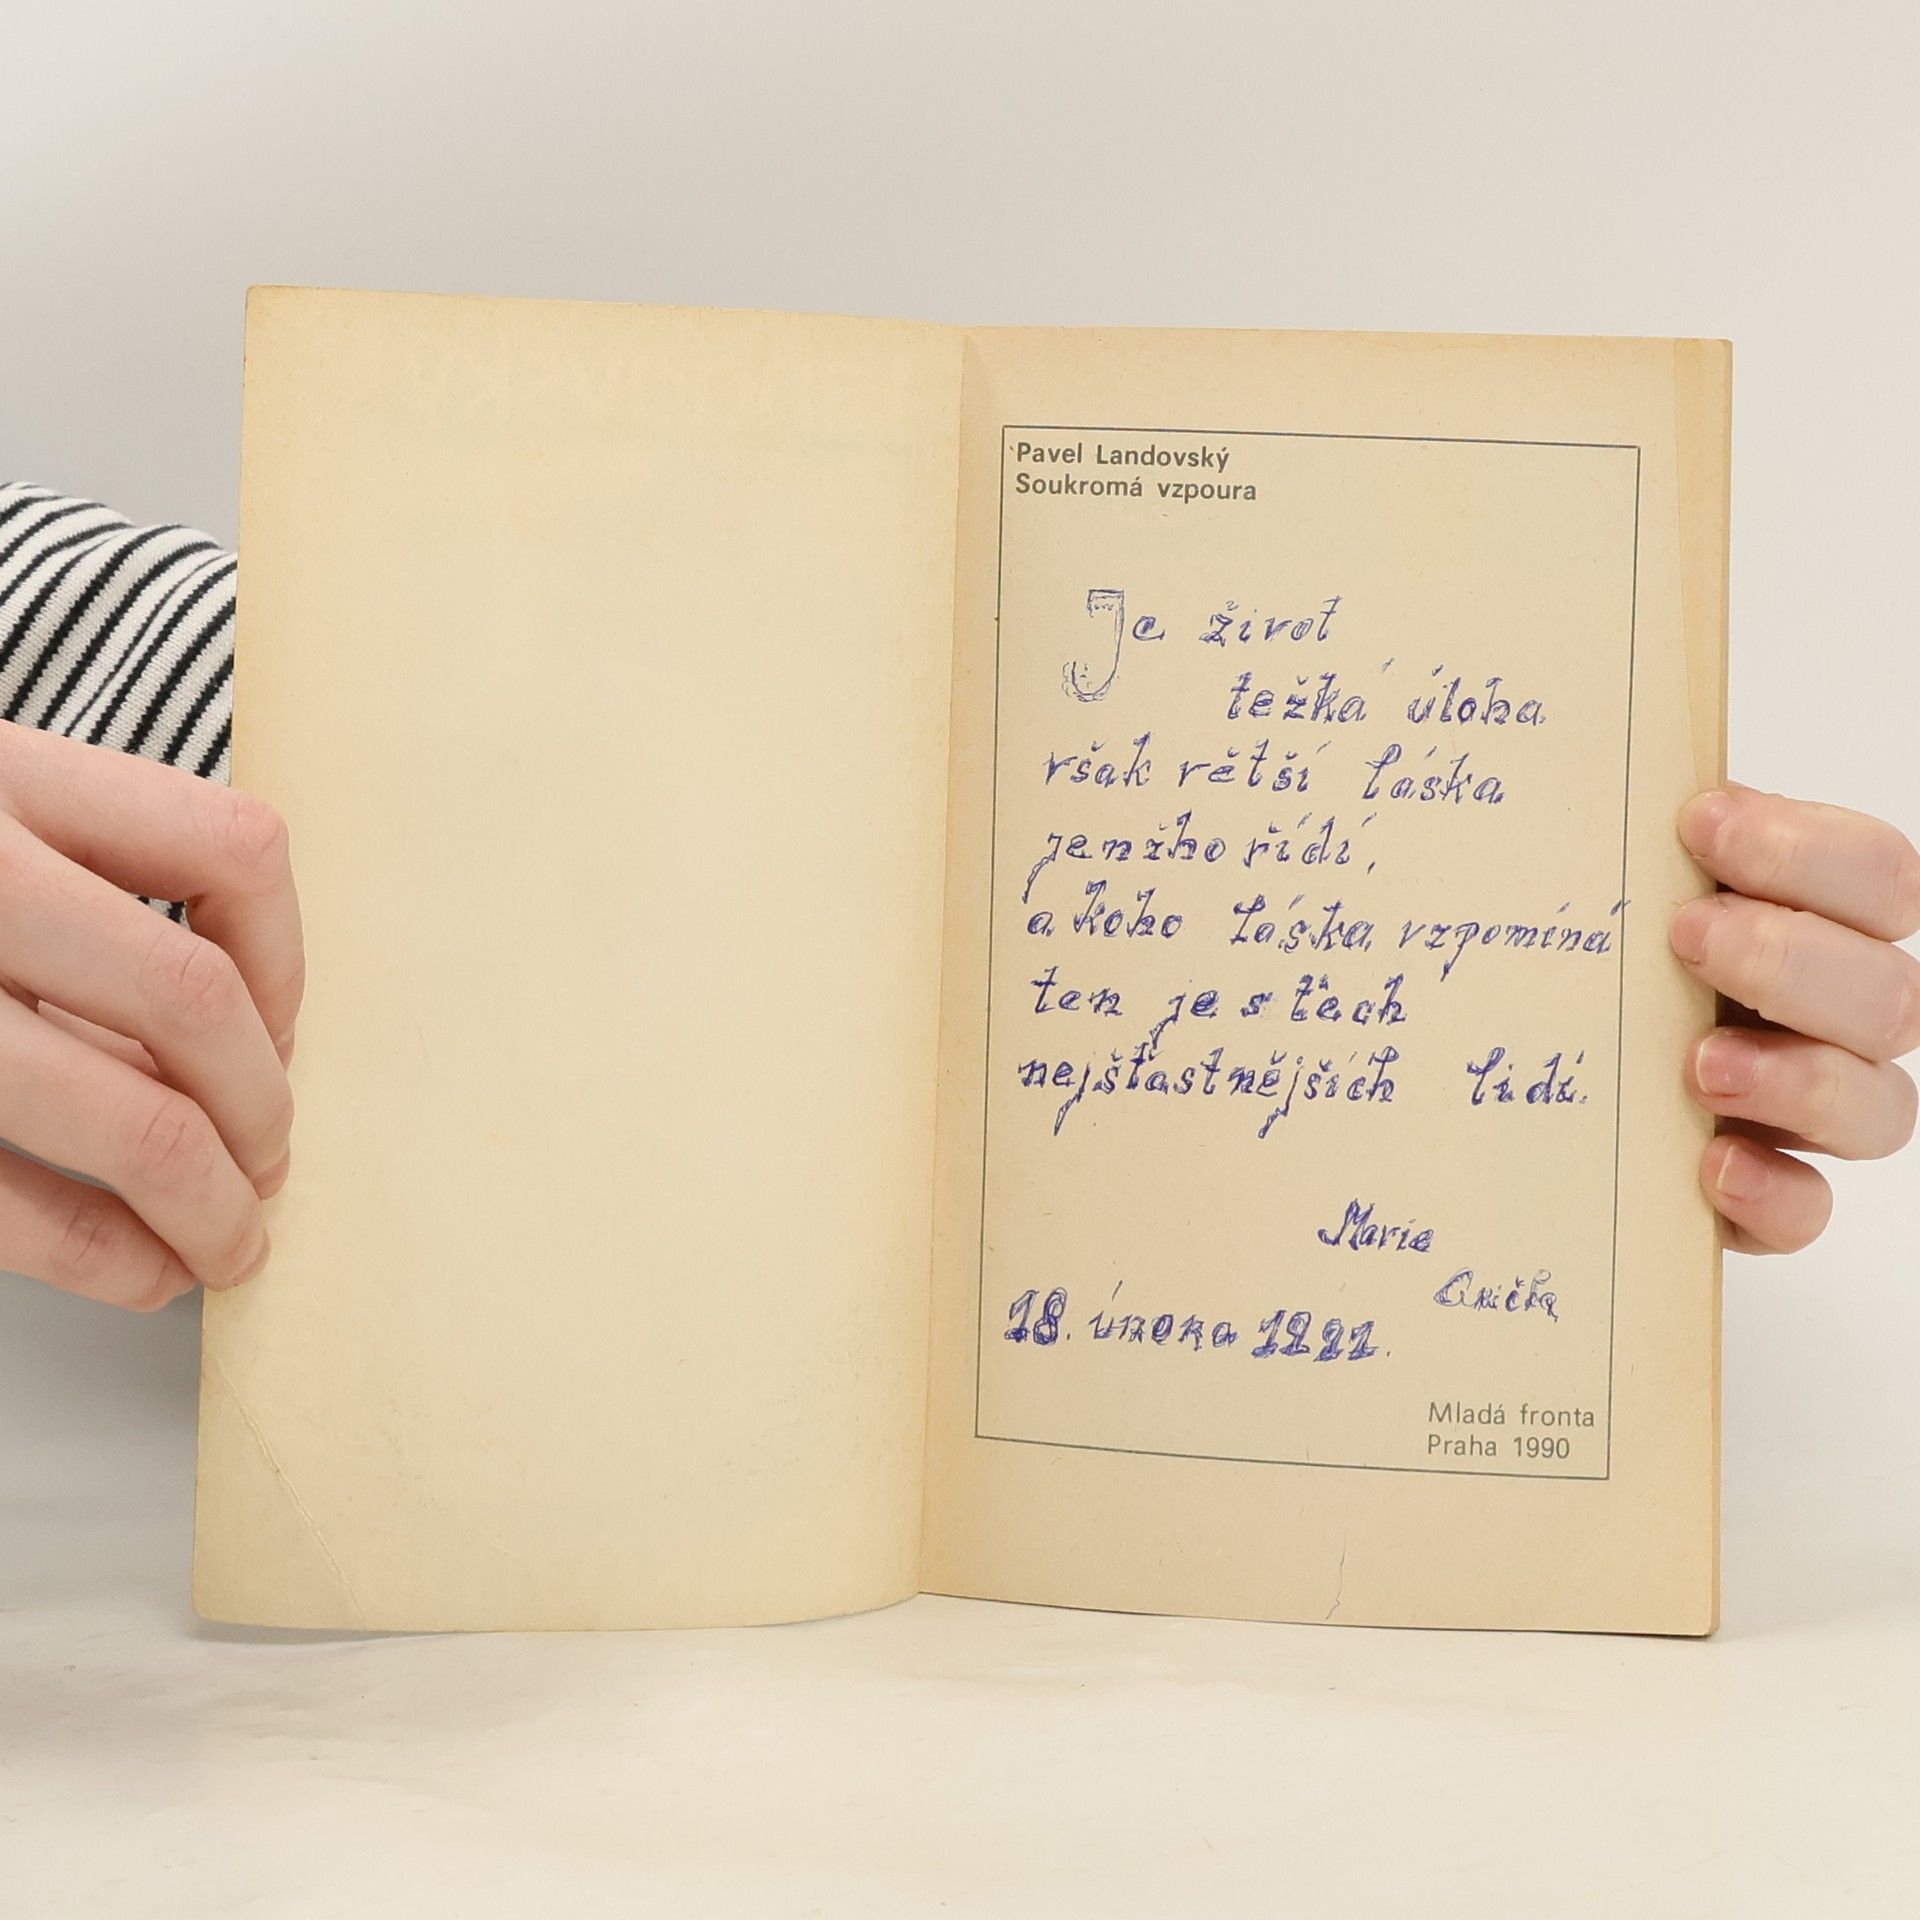 Pavel Landovský
Soukromá vzpoura
Je život
težká úloha
však větší láska
jenžho řídí,
a koho láska vzpomíná
ten je s těch
nejšťastnějších lidí.
Marie
18. února 1991.
Mladá fronta
Praha 1990